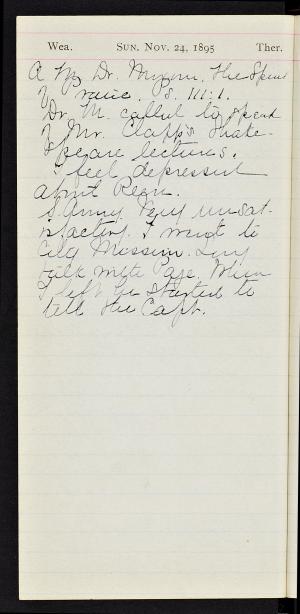 Wea. SUN. NOV. 24, 1895 Ther.
A. M. Dr. Munson. The Spirit
of praise. Ps. 111:1.
Dr. M. called to speak
of Mr. Clapp's Shake-
speare lectures.
I feel depressed
about
S. Army. Very unsat-
isfactory. I went to
City Mission. Long
talk with Page. When
I left he started to
tell the Capt.